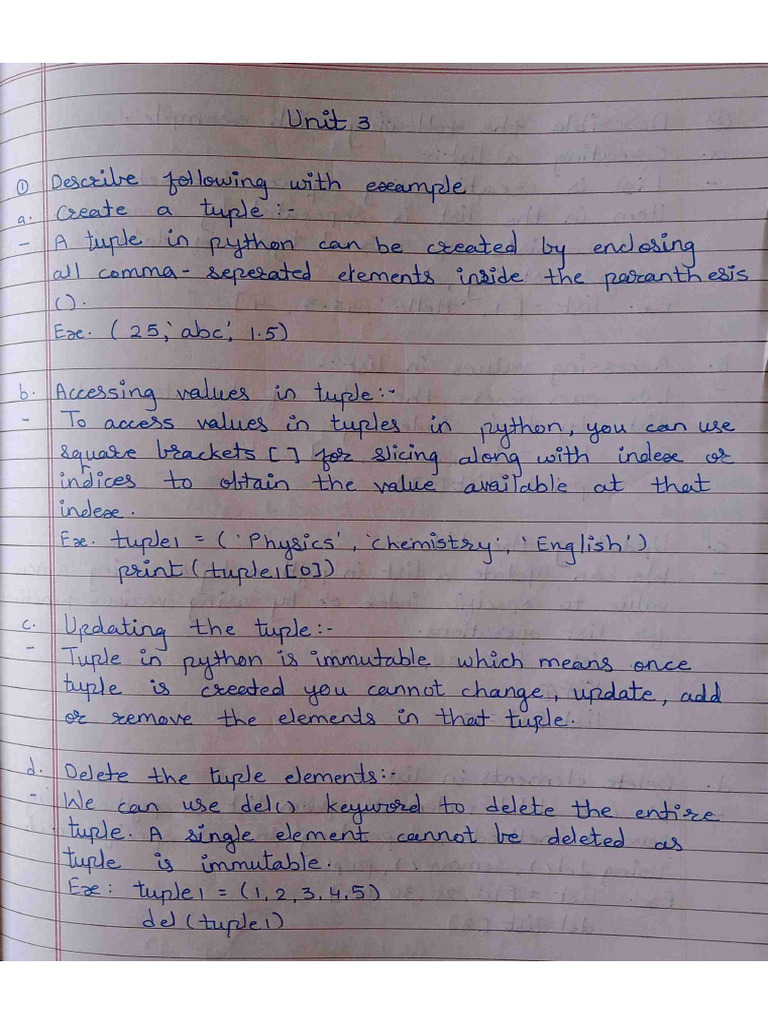 Unit 3
① Describe following with example
a. Create a tuple :-
- A tuple in python can be created by enclosing
all comma-seperated elements inside the paranthesis
().
Ex. (25,'abc', 1.5)
b. Accessing values in tuple:-
- To access values in tuples in python, you can use
square brackets [] for slicing along with index or
indices to obtain the value available at that
index.
Ex. tuple1 = ('Physics', 'chemistry', 'English')
print (tuple1[0])
c. Updating the tuple:-
- Tuple in python is immutable which means once
tuple is created you cannot change, update, add
or remove the elements in that tuple.
d. Delete the tuple elements:-
- We can use del() keyword to delete the entire
tuple. A single element cannot be deleted as
tuple is immutable.
Ex: tuple1 = (1,2,3,4,5)
del (tuple1)